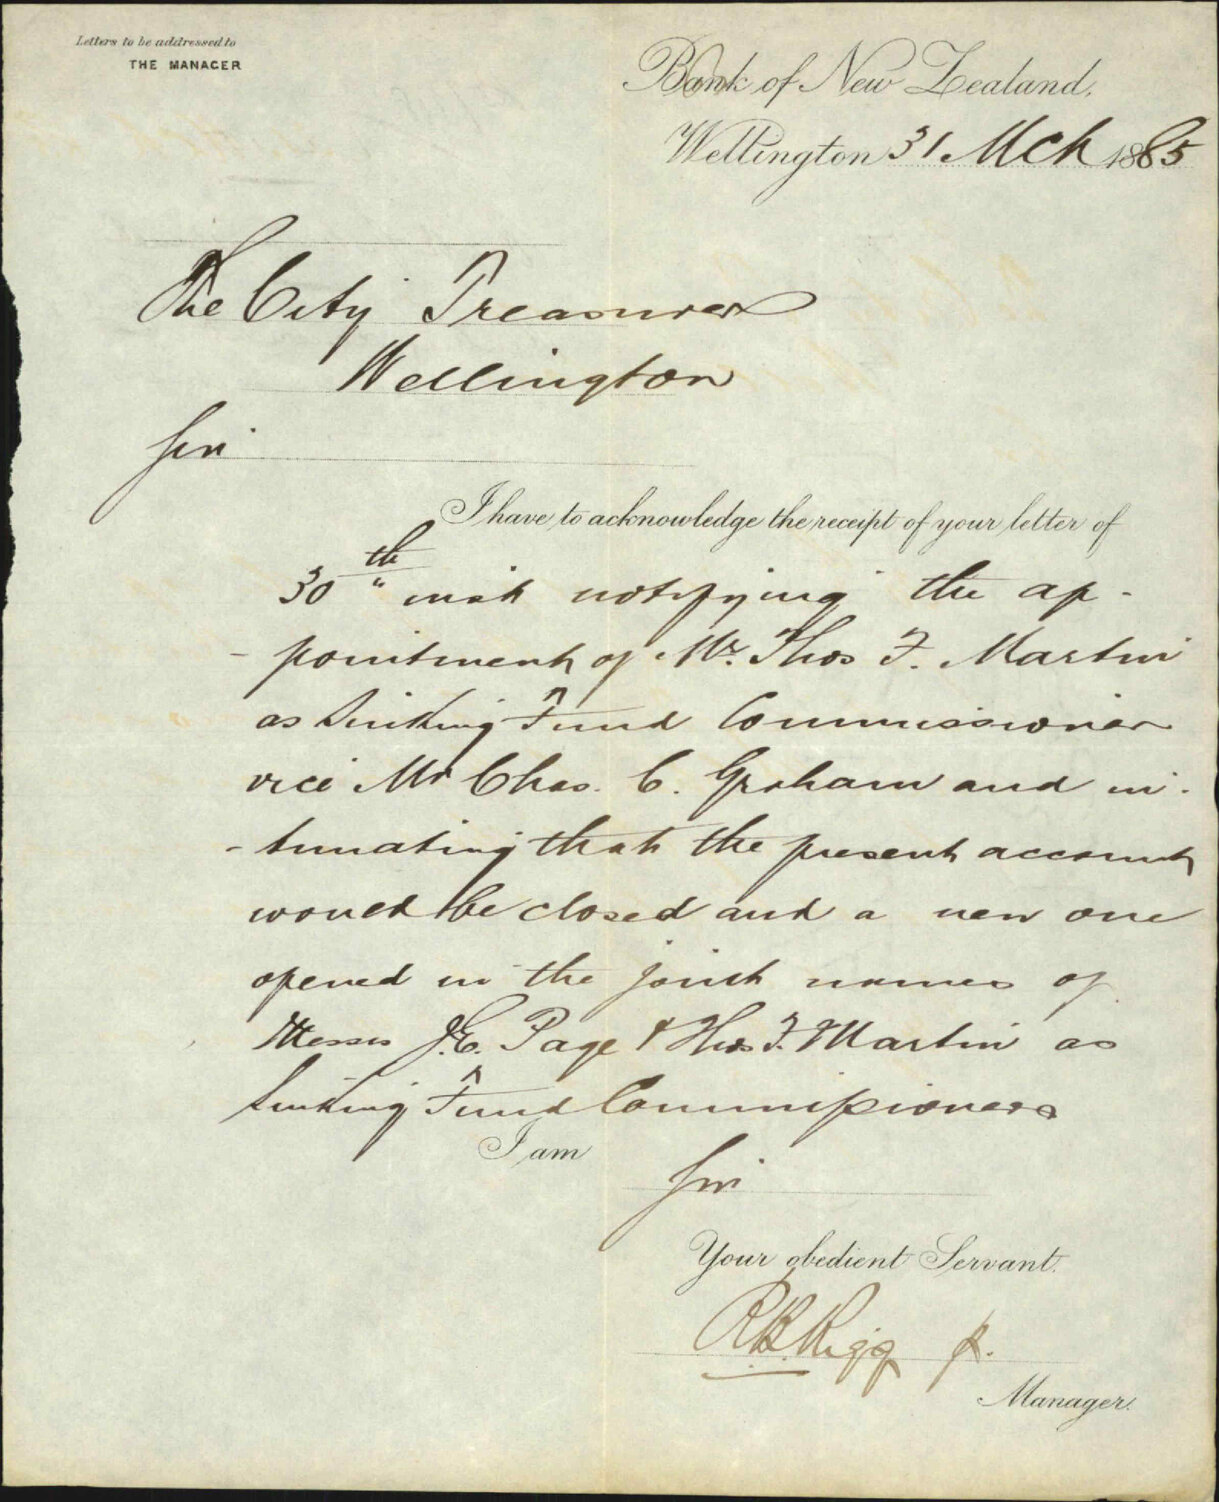 Letters to be addressed to
THE MANAGER
Bank of New Zealand,
Wellington 31 Mch 1885
The City Treasurer
Wellington
Sir
I have to acknowledge the receipt of your letter of
30th inst notifying the ap-
-pointment of Mr. Thos F. Martin
as Sinking Fund Commissioner
vice Mr Chas. C. Graham and in-
-timating that the present account
would be closed and a new one
opened in the joint names of
Messrs J.E. Page & Thos F. Martin as
Sinking Fund Commissioners
I am
Sir
Your obedient Servant.
R.B. Rigg p.
Manager.